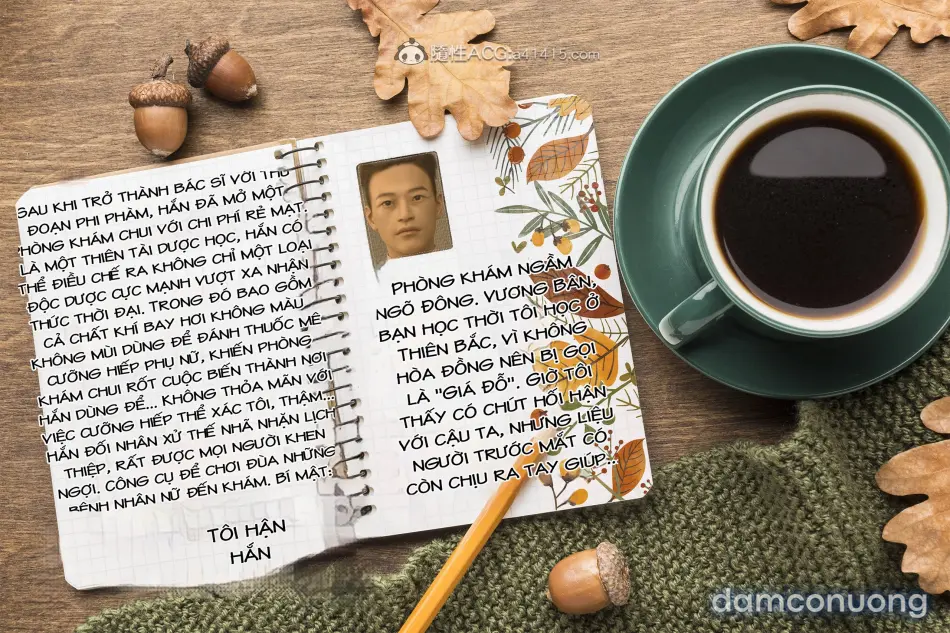 隨性ACG:a41415.com
SAU KHI TRỞ THÀNH BÁC SĨ VỚI THỦ
ĐOẠN PHI PHÀM, HẮN ĐÃ MỞ MỘT
PHÒNG KHÁM CHUI VỚI CHI PHÍ RẺ MẠT.
LÀ MỘT THIÊN TÀI DƯỢC HỌC, HẮN CÓ
THỂ ĐIỀU CHẾ RA KHÔNG CHỈ MỘT LOẠI
ĐỘC DƯỢC CỰC MẠNH VƯỢT XA NHẬN
THỨC THỜI ĐẠI. TRONG ĐÓ BAO GỒM
CẢ CHẤT KHÍ BAY HƠI KHÔNG MÀU
KHÔNG MÙI DÙNG ĐỂ ĐÁNH THUỐC MÊ
CƯỠNG HIẾP PHỤ NỮ, KHIẾN PHÒNG
KHÁM CHUI RỐT CUỘC BIẾN THÀNH NƠI
HẮN DÙNG ĐỂ... KHÔNG THỎA MÃN VỚI
VIỆC CƯỠNG HIẾP THỂ XÁC TÔI, THẬM...
HẮN ĐỐI NHÂN XỬ THẾ NHÃ NHẶN LỊCH
THIỆP, RẤT ĐƯỢC MỌI NGƯỜI KHEN
NGỢI. CÔNG CỤ ĐỂ CHƠI ĐÙA NHỮNG
BỆNH NHÂN NỮ ĐẾN KHÁM. BÍ MẬT:
TÔI HẬN
HẮN
PHÒNG KHÁM NGẦM
NGÕ ĐÔNG. VƯƠNG BÂN,
BẠN HỌC THỜI TÔI HỌC Ở
THIÊN BẮC, VÌ KHÔNG
HÒA ĐỒNG NÊN BỊ GỌI
LÀ "GIÁ ĐỖ". GIỜ TÔI
THẤY CÓ CHÚT HỐI HẬN
VỚI CẬU TA, NHƯNG LIỆU
NGƯỜI TRƯỚC MẮT CÓ
CÒN CHỊU RA TAY GIÚP...
damconuong